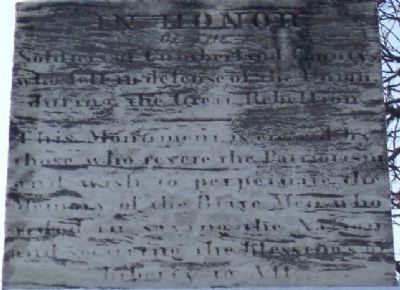 IN HONOR
OF THE
Soldiers of Cumberland County,
who fell in defense of the Union
during the Great Rebellion
This Monument is erected by
those who revere the Patriotism
and wish to perpetuate the
Memory of the Brave Men who
aided in saving the Nation
and securing the blessings of
Liberty to All